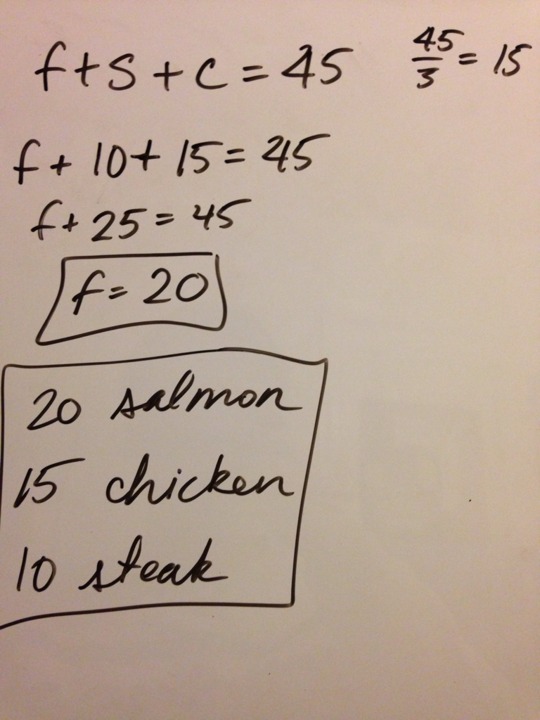 f + s + c = 45
45/3 = 15
f + 10 + 15 = 45
f + 25 = 45
f = 20
20 salmon
15 chicken
10 steak